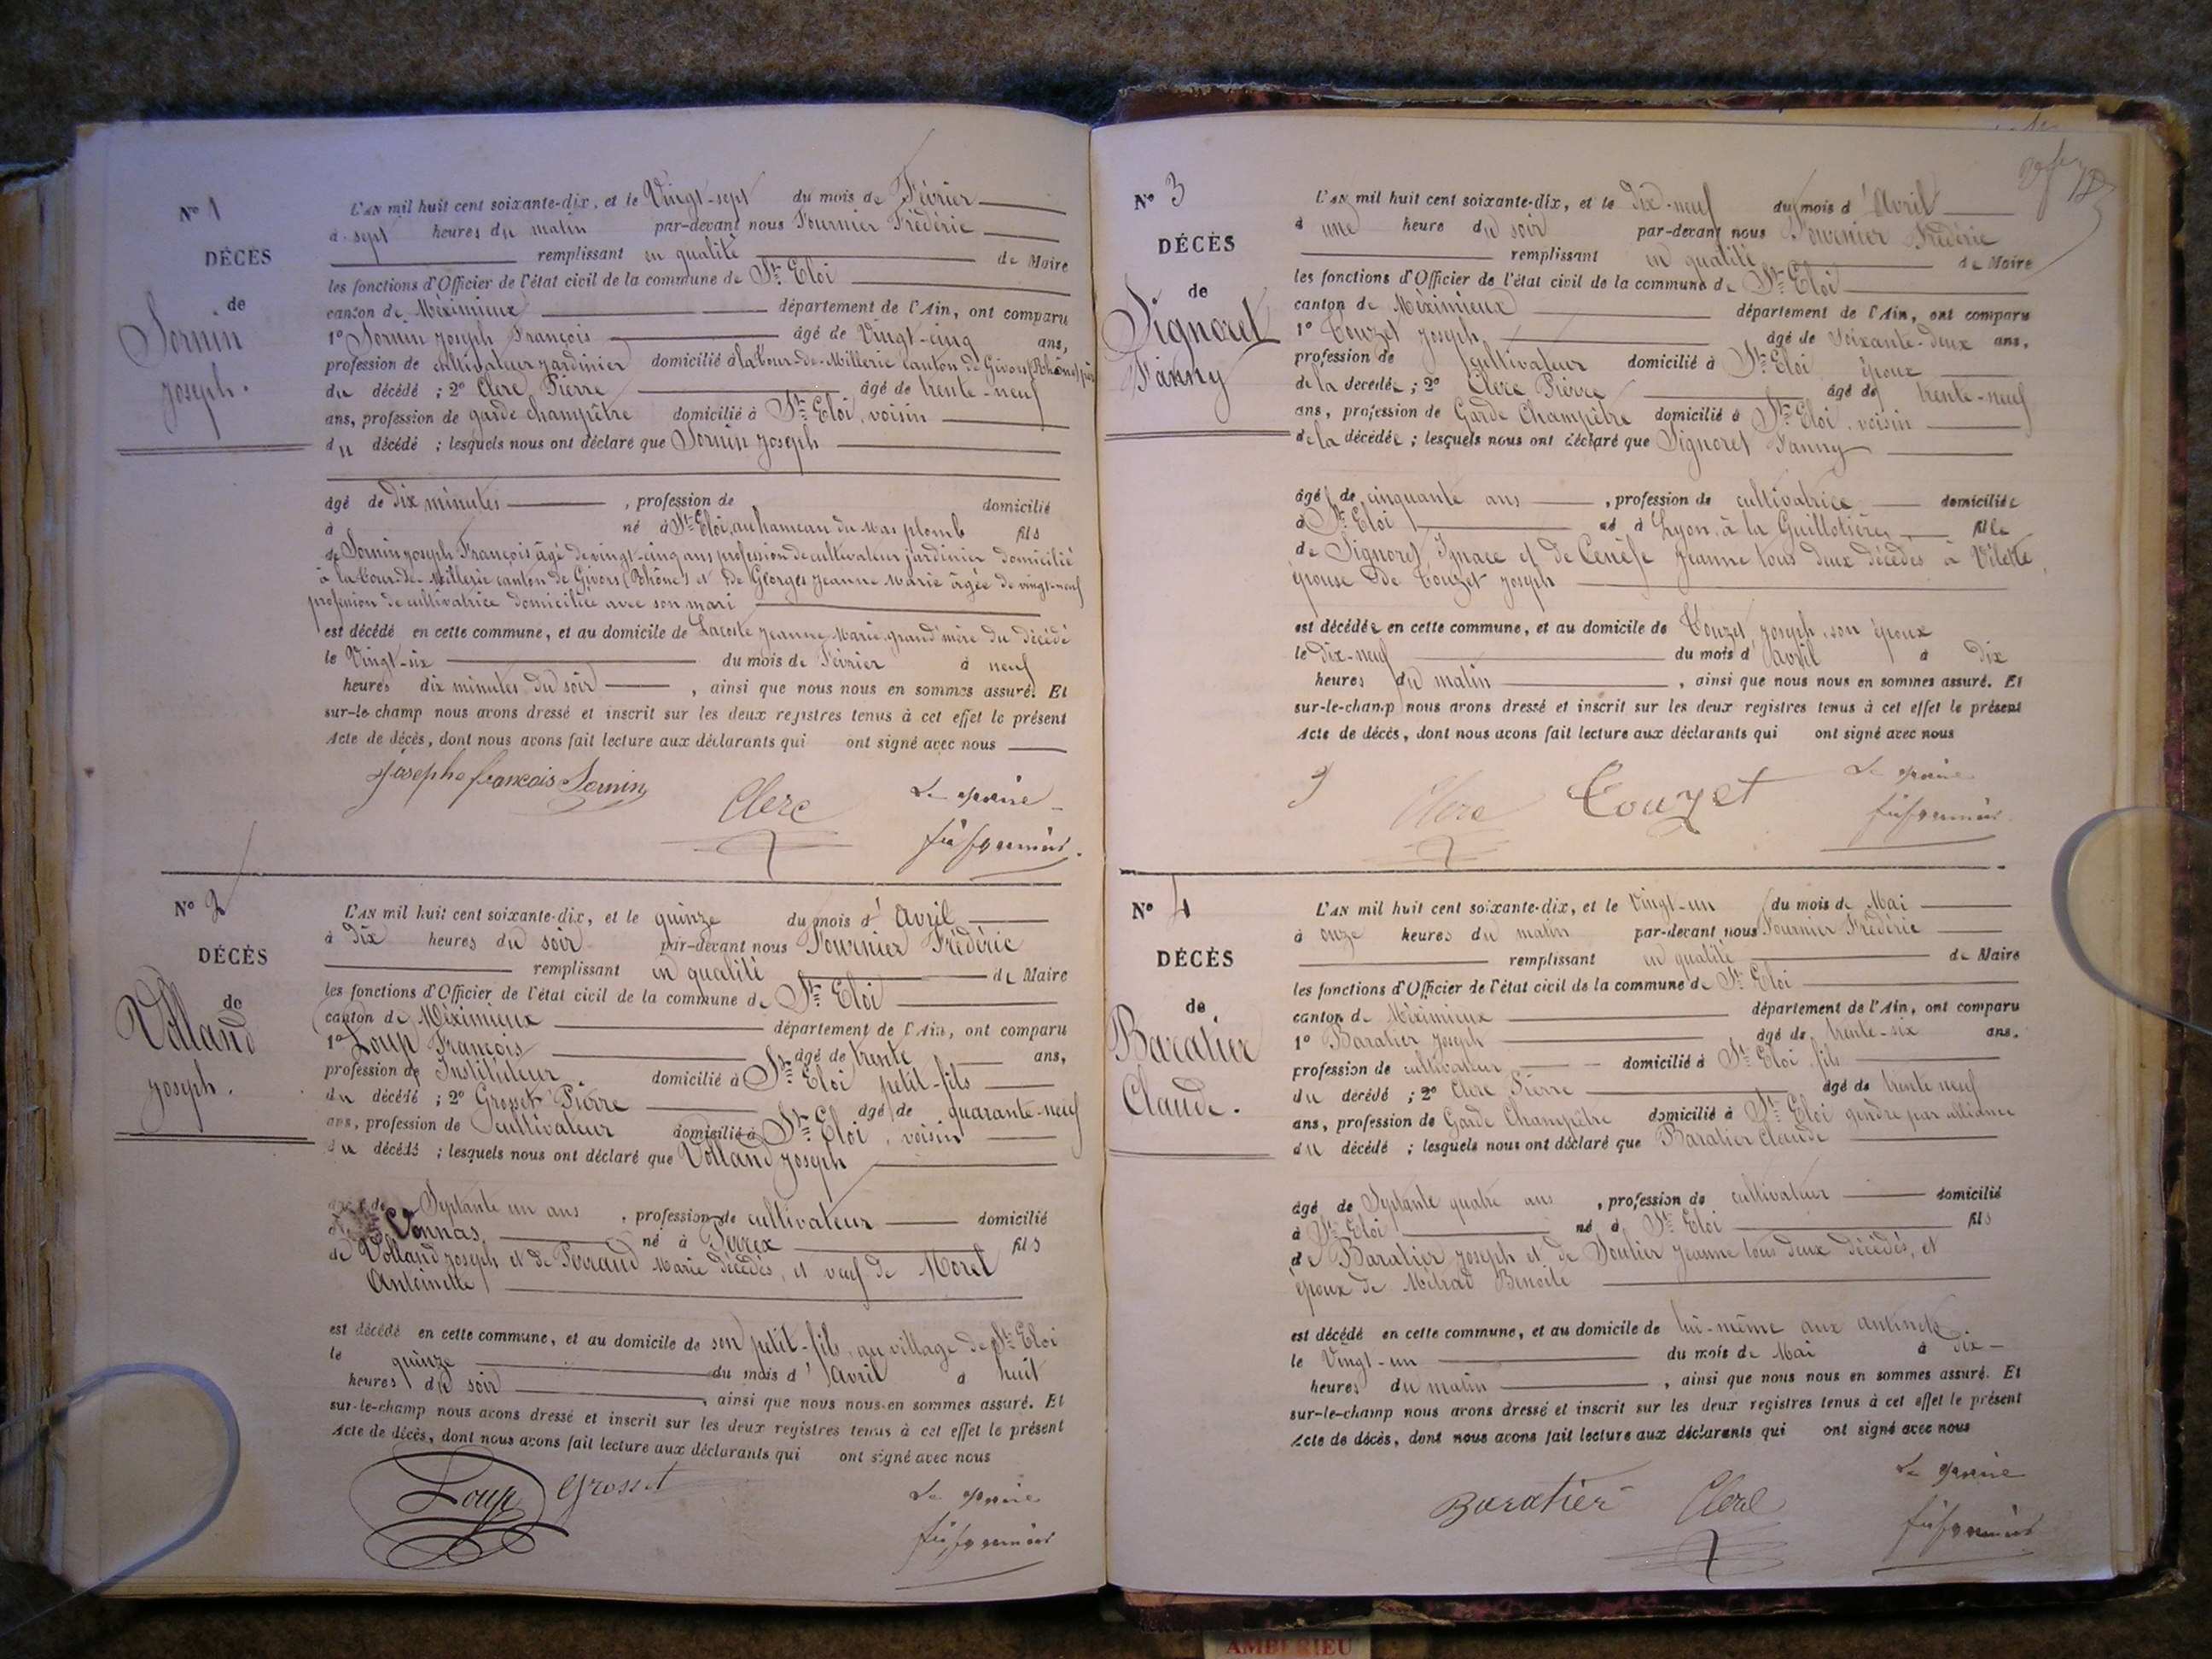 Nº 1
DÉCÈS
de
Sornin
Joseph.
L'AN mil huit cent soixante-dix, et le Vingt-sept du mois de Février
à sept heures du matin par-devant nous Fournier Frédéric
remplissant en qualité de Maire
les fonctions d'Officier de l'état civil de la commune de St Eloi
canton de Méximieux département de l'Ain, ont comparu
1º Sornin Joseph François âgé de Vingt-cinq ans,
profession de cultivateur jardinier domicilié à la Tour-de-Millerie canton de Givors (Rhône) père
du décédé ; 2º Clerc Pierre âgé de trente-neuf
ans, profession de garde champêtre domicilié à St Eloi, voisin
du décédé ; lesquels nous ont déclaré que Sornin Joseph
âgé de dix minutes, profession de domicilié
à né à St Eloi, au hameau du Mas plomb fils
de Sornin Joseph François âgé de vingt-cinq ans profession de cultivateur jardinier domicilié
à la Tour-de-Millerie canton de Givors (Rhône) et de Georges Jeanne Marie âgée de vingt-neuf
profession de cultivatrice domiciliée avec son mari
est décédé en cette commune, et au domicile de Lacoste Jeanne Marie, grand'mère du décédé
le Vingt-six du mois de Février à neuf
heures dix minutes du soir, ainsi que nous nous en sommes assuré. Et
sur-le-champ nous avons dressé et inscrit sur les deux registres tenus à cet effet le présent
Acte de décès, dont nous avons fait lecture aux déclarants qui ont signé avec nous
Josephe francois Sornin
Clerc
Le maire
Nº 2
DÉCÈS
de
Volland
Joseph.
L'AN mil huit cent soixante-dix, et le quinze du mois d'Avril
à Dix heures du soir par-devant nous Fournier Frédéric
remplissant en qualité de Maire
les fonctions d'Officier de l'état civil de la commune de St Eloi
canton de Méximieux département de l'Ain, ont comparu
1º Loup François âgé de trente ans,
profession de Instituteur domicilié à St Eloi petit-fils
du décédé ; 2º Grosset Pierre âgé de quarante-neuf
ans, profession de cultivateur domicilié à St Eloi, voisin
du décédé ; lesquels nous ont déclaré que Volland Joseph
âgé de Septante un ans, profession de cultivateur domicilié
à Vonnas né à Perrex fils
de Volland Joseph et de Perraud Marie décédés, et veuf de Morel
Antoinette
est décédé en cette commune, et au domicile de son petit-fils, au village de St Eloi
le quinze du mois d'Avril à huit
heures du soir, ainsi que nous nous en sommes assuré. Et
sur-le-champ nous avons dressé et inscrit sur les deux registres tenus à cet effet le présent
Acte de décès, dont nous avons fait lecture aux déclarants qui ont signé avec nous
Loup Grosset
Le maire
Nº 3
DÉCÈS
de
Signoret
Fanny
L'AN mil huit cent soixante-dix, et le dix-neuf du mois d'Avril
à une heure du soir par-devant nous Fournier Frédéric
remplissant en qualité de Maire
les fonctions d'Officier de l'état civil de la commune de St Eloi
canton de Méximieux département de l'Ain, ont comparu
1º Couzet Joseph âgé de Soixante-deux ans,
profession de cultivateur domicilié à St Eloi époux
de la décédée ; 2º Clerc Pierre âgé de trente-neuf
ans, profession de Garde Champêtre domicilié à St Eloi, voisin
de la décédée ; lesquels nous ont déclaré que Signoret Fanny
âgé de cinquante ans, profession de cultivatrice domiciliée
à St Eloi né à Lyon, à la Guillotière fille
de Signoret Ignace et de Jeanne tous deux décédés à
épouse de Couzet Joseph
est décédée en cette commune, et au domicile de Couzet, Joseph, son époux
le dix-neuf du mois d'avril à dix
heures du matin, ainsi que nous nous en sommes assuré. Et
sur-le-champ nous avons dressé et inscrit sur les deux registres tenus à cet effet le présent
Acte de décès, dont nous avons fait lecture aux déclarants qui ont signé avec nous
Clerc Couzet
Le maire
Nº 4
DÉCÈS
de
Baratier
Claude.
L'AN mil huit cent soixante-dix, et le Vingt-un du mois de Mai
à onze heures du matin par-devant nous Fournier Frédéric
remplissant en qualité de Maire
les fonctions d'Officier de l'état civil de la commune de St Eloi
canton de Méximieux département de l'Ain, ont comparu
1º Baratier Joseph âgé de trente-six ans,
profession de cultivateur domicilié à St Eloi fils
du décédé ; 2º Clerc Pierre âgé de trente neuf
ans, profession de Garde Champêtre domicilié à St Eloi gendre par alliance
du décédé ; lesquels nous ont déclaré que Baratier Claude
âgé de Septante quatre ans, profession de cultivateur domicilié
à St Eloi né à St Eloi fils
de Baratier Joseph et de Soulier Jeanne tous deux décédés, et
époux de Benoite
est décédé en cette commune, et au domicile de lui-même aux
le Vingt-un du mois de Mai à dix
heures du matin, ainsi que nous nous en sommes assuré. Et
sur-le-champ nous avons dressé et inscrit sur les deux registres tenus à cet effet le présent
Acte de décès, dont nous avons fait lecture aux déclarants qui ont signé avec nous
Baratier Clerc
Le maire
AMBERIEU